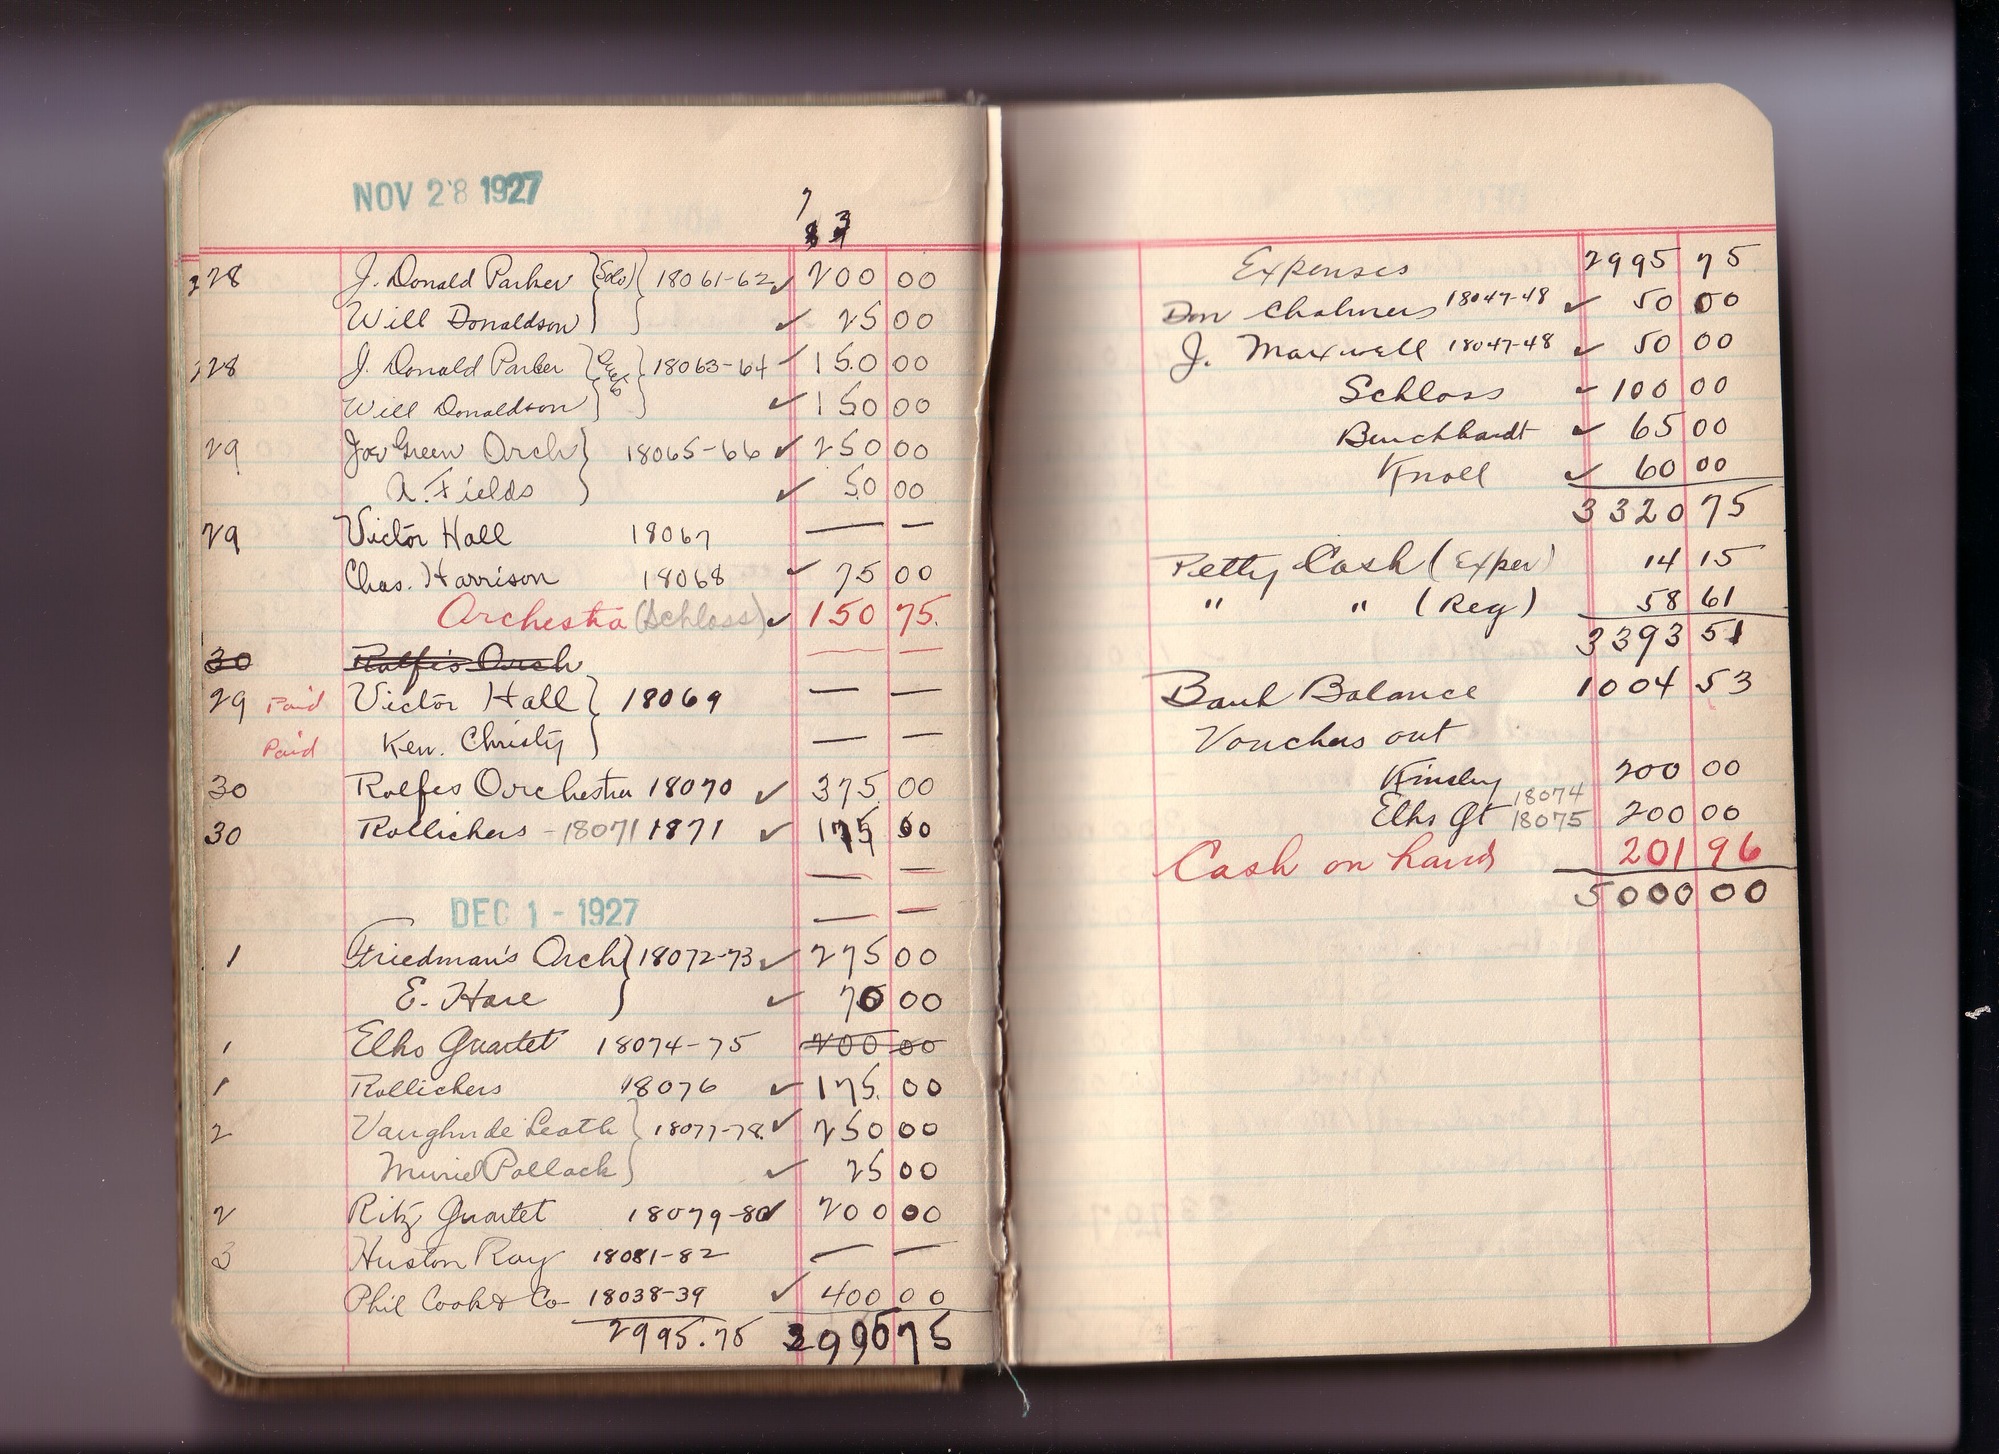 NOV 28 1927
7
3
28 J. Donald Parker (Solo) 18061-62 ✓ 200 00
Will Donaldson ✓ 25 00
28 J. Donald Parker 18063-64 ✓ 150 00
Will Donaldson ✓ 150 00
29 Joe Green Orch 18065-66 ✓ 250 00
A. Fields ✓ 50 00
29 Victor Hall 18067 — —
Chas. Harrison 18068 ✓ 75 00
Orchestra (Schloss) ✓ 150 75.
30 Rolfe's Orch — —
29 Paid Victor Hall 18069 — —
Paid Ken. Christy — —
30 Rolfes Orchestra 18070 ✓ 375 00
30 Rollickers - 18071 1871 ✓ 175 00
— —
DEC 1 - 1927 — —
1 Friedman's Orch 18072-73 ✓ 275 00
E. Hare ✓ 70 00
1 Elks Quartet 18074-75 200 00
1 Rollickers 18076 ✓ 175. 00
2 Vaughn de Leath 18077-78 ✓ 250 00
Muriel Pollack ✓ 25 00
2 Ritz Quartet 18079-80 ✓ 200 00
3 Huston Ray 18081-82 — —
Phil Cook & Co 18038-39 ✓ 400 00
2995.75 2995 75
Expenses 2995 75
Don Chalmers 18047-48 ✓ 50 00
J. Maxwell 18047-48 ✓ 50 00
Schloss ✓ 100 00
Burckhardt ✓ 65 00
Knoll ✓ 60 00
3320 75
Petty Cash (Exper) 14 15
" " (Reg) 58 61
3393 51
Bank Balance 1004 53
Vouchers out
Kinsley 200 00
Elks Qt 18074 18075 200 00
Cash on hand 201 96
5000 00